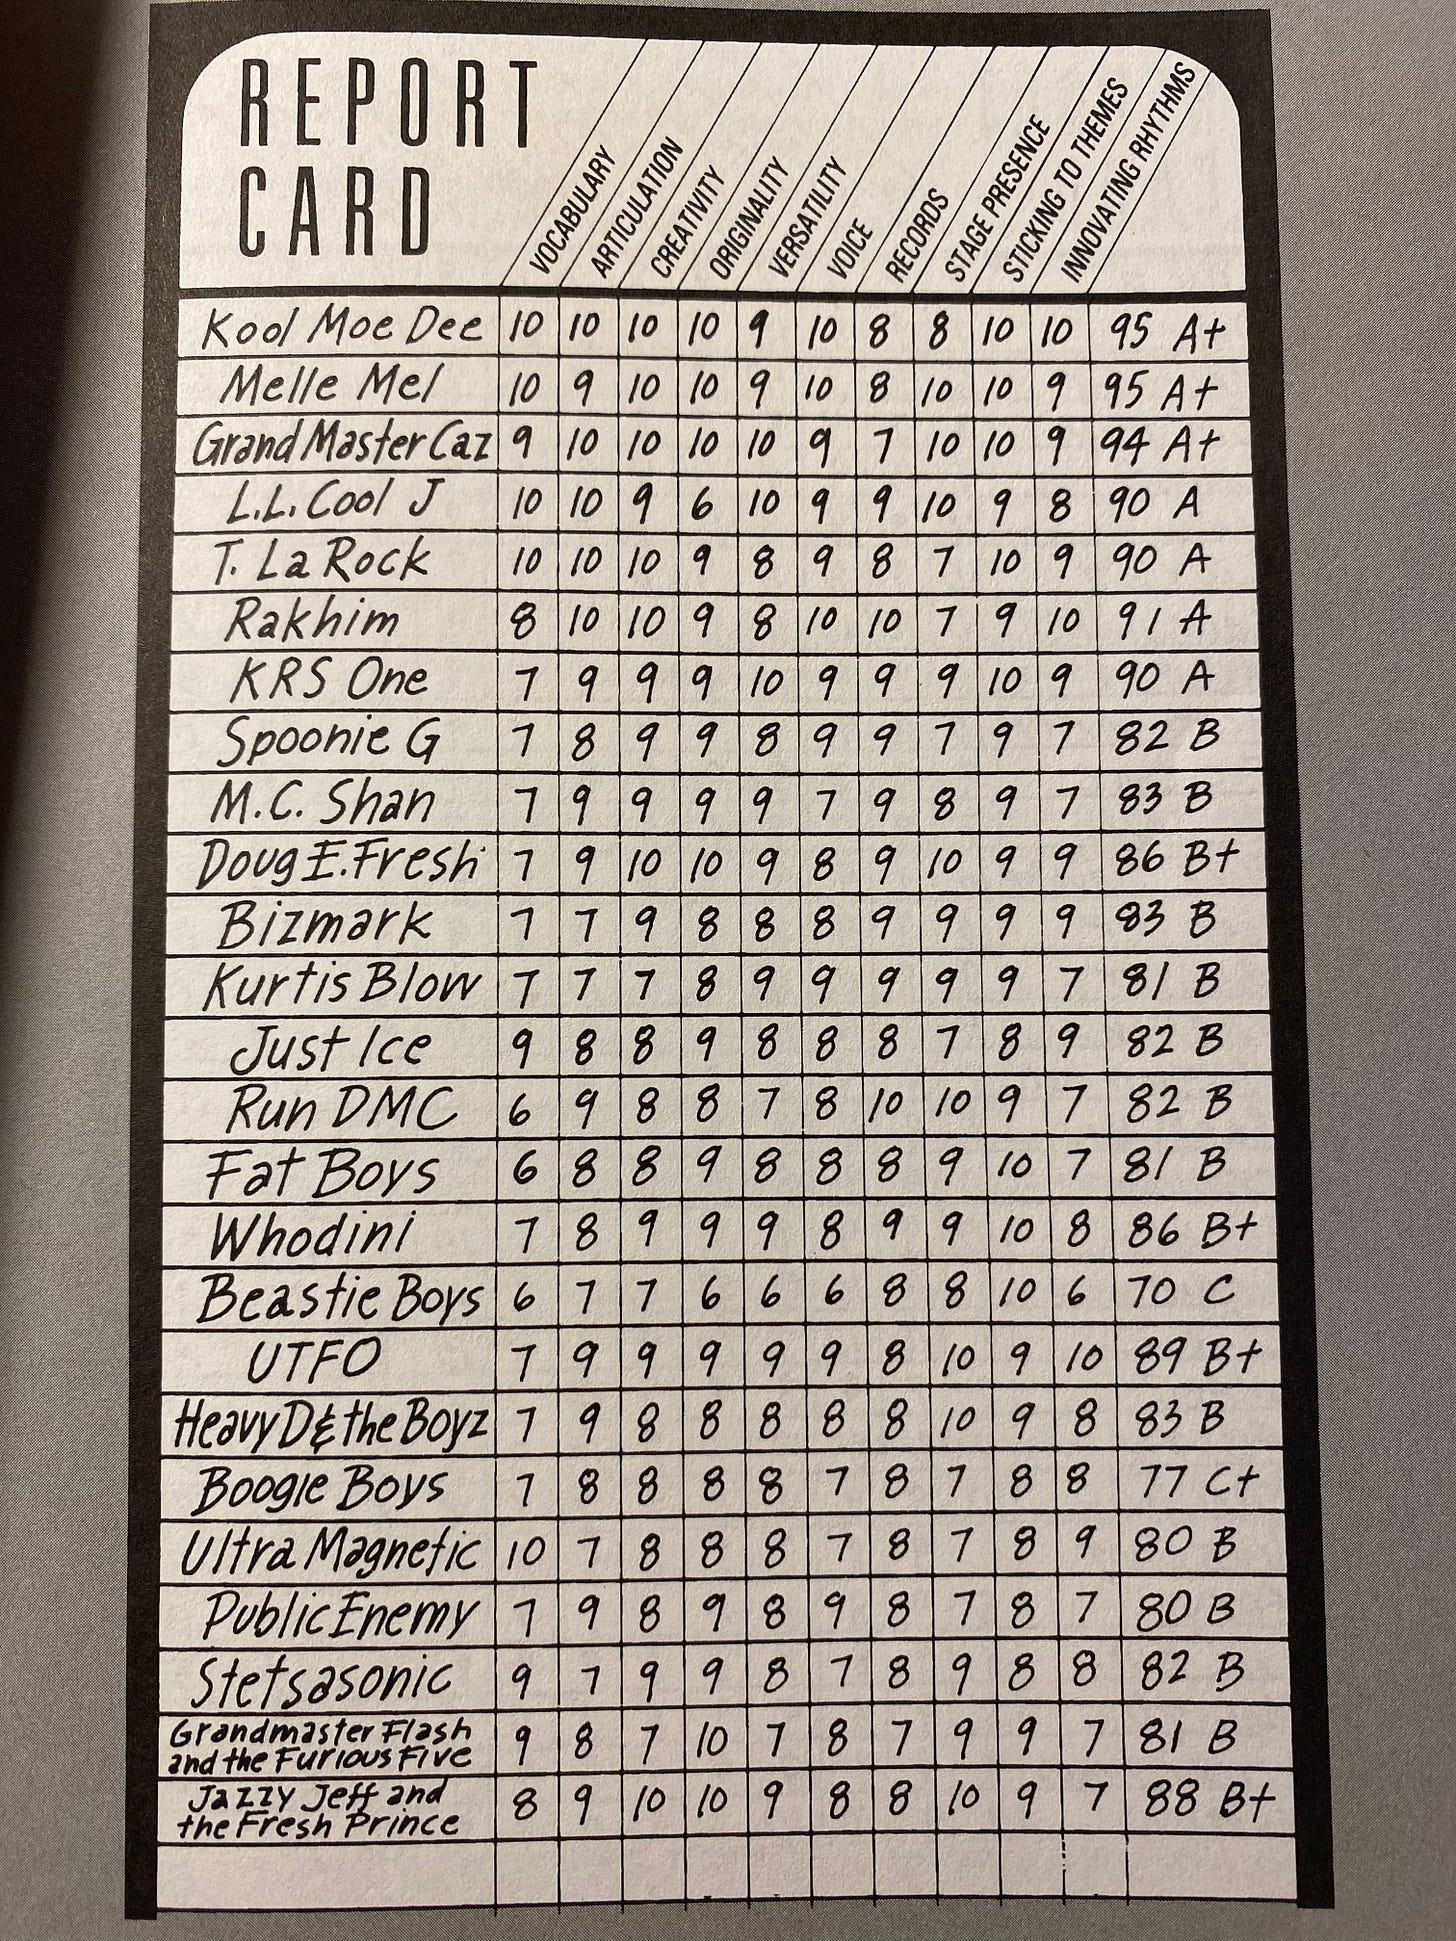 REPORT
CARD
VOCABULARY
ARTICULATION
CREATIVITY
ORIGINALITY
VERSATILITY
VOICE
RECORDS
STAGE PRESENCE
STICKING TO THEMES
INNOVATING RHYTHMS
Kool Moe Dee 10 10 10 10 9 10 8 8 10 10 95 A+
Melle Mel 10 9 10 10 9 10 8 10 10 9 95 A+
Grand Master Caz 9 10 10 10 10 9 7 10 10 9 94 A+
L.L. Cool J 10 10 9 6 10 9 9 10 9 8 90 A
T. La Rock 10 10 10 9 8 9 8 7 10 9 90 A
Rakhim 8 10 10 9 8 10 10 7 9 10 91 A
KRS One 7 9 9 9 10 9 9 9 10 9 90 A
Spoonie G 7 8 9 9 8 9 9 7 9 7 82 B
M.C. Shan 7 9 9 9 9 7 9 8 9 7 83 B
Doug E. Fresh 7 9 10 10 9 8 9 10 9 9 86 B+
Bizmark 7 7 9 8 8 8 9 9 9 9 83 B
Kurtis Blow 7 7 7 8 9 9 9 9 9 7 81 B
Just Ice 9 8 8 9 8 8 8 7 8 9 82 B
Run DMC 6 9 8 8 7 8 10 10 9 7 82 B
Fat Boys 6 8 8 9 8 8 8 9 10 7 81 B
Whodini 7 8 9 9 9 8 9 9 10 8 86 B+
Beastie Boys 6 7 7 6 6 6 8 8 10 6 70 C
UTFO 7 9 9 9 9 9 8 10 9 10 89 B+
Heavy D & the Boyz 7 9 8 8 8 8 8 10 9 8 83 B
Boogie Boys 7 8 8 8 8 7 8 7 8 8 77 C+
Ultra Magnetic 10 7 8 8 8 7 8 7 8 9 80 B
Public Enemy 7 9 8 9 8 9 8 7 8 7 80 B
Stetsasonic 9 7 9 9 8 7 8 9 8 8 82 B
Grandmaster Flash
and the Furious Five 9 8 7 10 7 8 7 9 9 7 81 B
Jazzy Jeff and
the Fresh Prince 8 9 10 10 9 8 8 10 9 7 88 B+